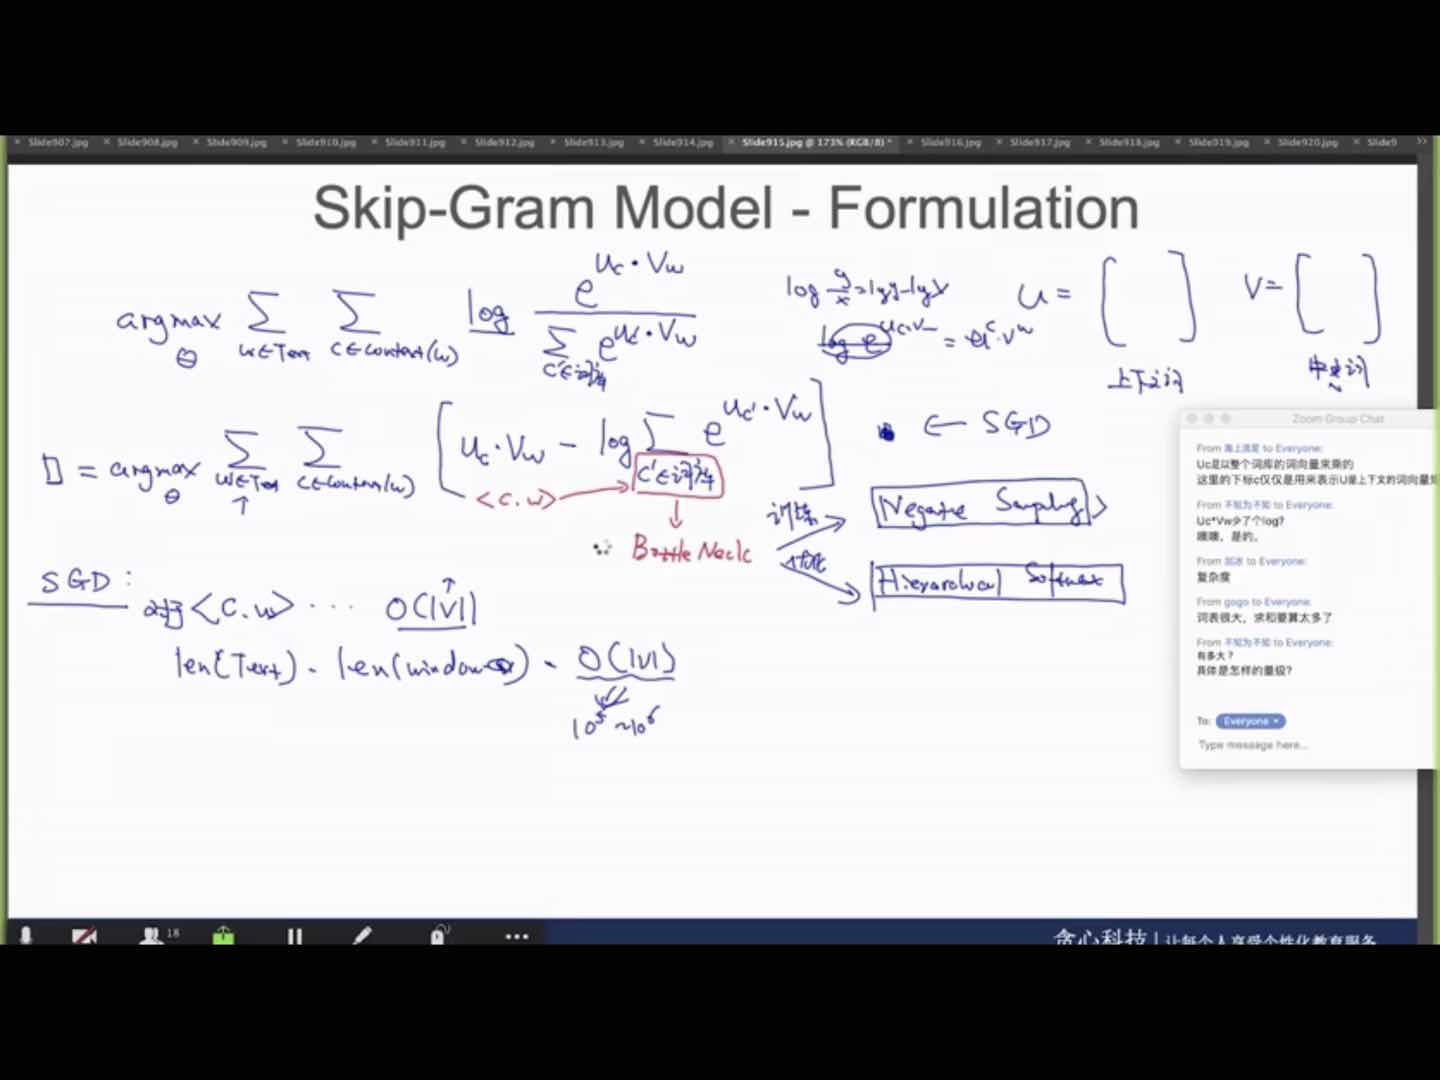 Slide907.jpg Slide908.jpg Slide909.jpg Slide910.jpg Slide911.jpg Slide912.jpg Slide913.jpg Slide914.jpg Slide915.jpg @ 173% (RGB/8) * Slide916.jpg Slide917.jpg Slide918.jpg Slide919.jpg Slide920.jpg Slide9
Skip-Gram Model - Formulation
argmax θ Σ w∈Text Σ c∈context(w) log e^(Uc·Vw) / Σ c'∈词库 e^(Uc'·Vw)
log y/x = logy-logx
log e^(Uc·Vw) = Uc·Vw
U = [ ]
上下文词
V = [ ]
中心词
D = argmax θ Σ w∈Text Σ c∈context(w) [ Uc·Vw - log Σ c'∈词库 e^(Uc'·Vw) ]
← SGD
<c.w>
Bottle Neck
训练
优化
Negative Sampling
Hierarchical Softmax
SGD:
对于<c.w> ... O(|V|)
len(Text) · len(window) · O(|V|)
10^5 ~10^6
Zoom Group Chat
From 海上流星 to Everyone:
Uc是以整个词库的词向量来乘的
这里的下标c仅仅是用来表示U是上下文的词向量
From 不知为不知 to Everyone:
Uc*Vw少了个log?
噢噢，是的。
From 如冰 to Everyone:
复杂度
From gogo to Everyone:
词表很大，求和要算太多了
From 不知为不知 to Everyone:
有多大？
具体是怎样的量级?
To: Everyone
Type message here...
18
贪心科技 | 让每个人享受个性化教育服务